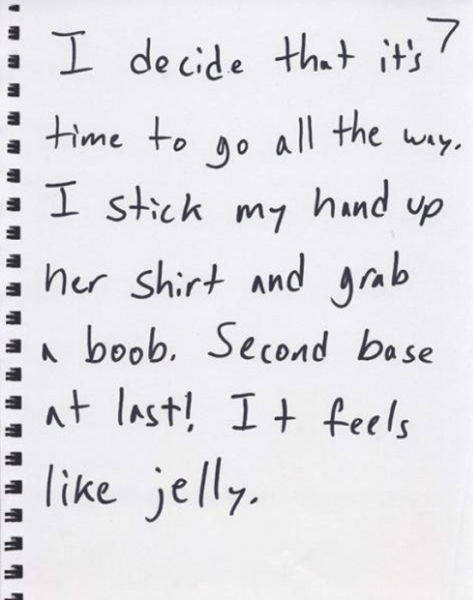 7
I decide that it's
time to go all the way.
I stick my hand up
her shirt and grab
a boob. Second base
at last! It feels
like jelly.